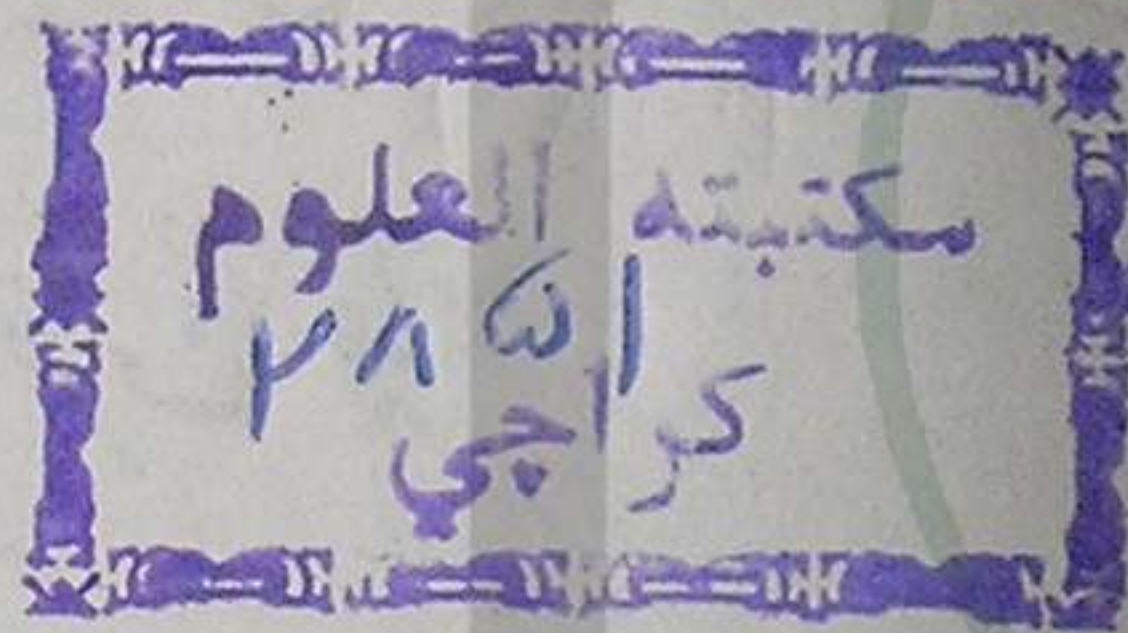 مكتبته العلوم
٢٨٥١
كراجي